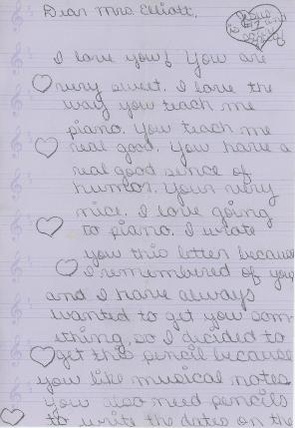 Dear Mrs. Elliott,
I love you! You are
very sweet. I love the
way you teach me
piano. You teach me
real good. You have a
real good sence of
humor. Your very
nice. I love going
to piano. I wrote
you this letter because
I remembered of you
and I have always
wanted to get you som-
ething, so I decided to
get this pencil because
you like musical notes
you also need pencils
to write the dates on the